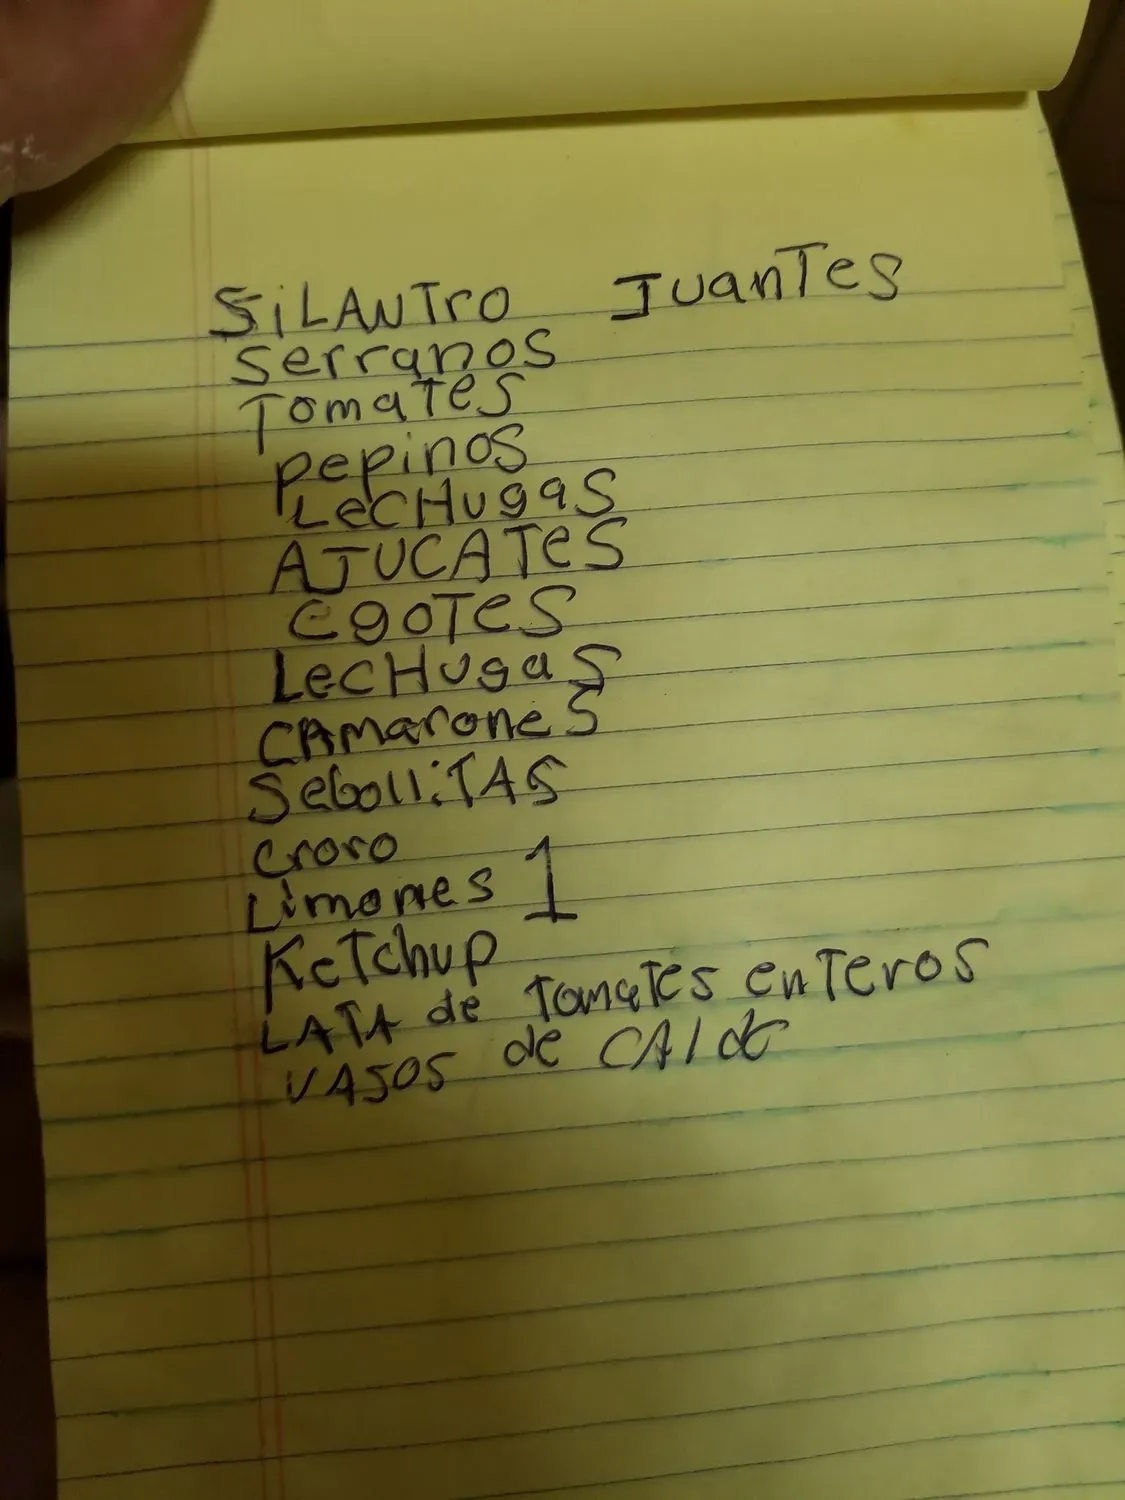 SiLANTro JuanTes
serranos
TomaTes
pepinos
LeCHugas
AJUCATes
egoTes
LecHugas
CAmarones
SebolliTAS
croro
Limones 1
KeTchup
LATA de TomaTes enTeros
VASOS de CAldo